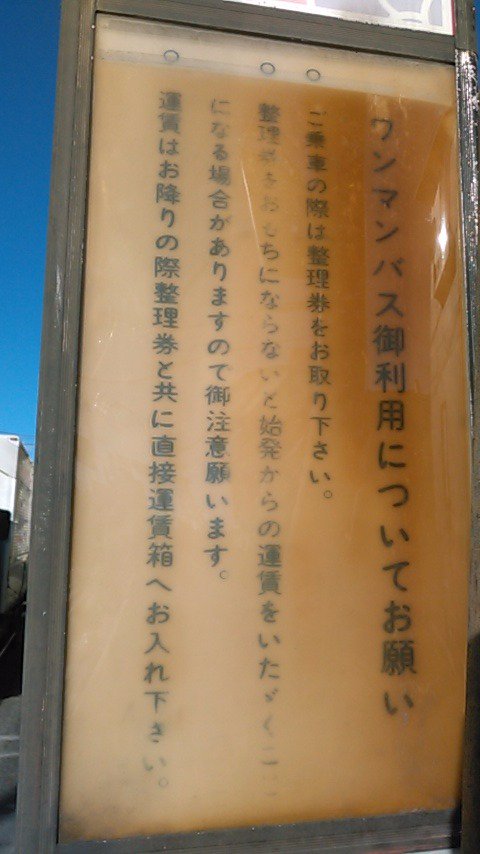 ワンマンバス御利用についてお願い
ご乗車の際は整理券をお取り下さい。
整理券をおもちにならないと始発からの運賃をいたゞくこと
になる場合がありますので御注意願います。
運賃はお降りの際整理券と共に直接運賃箱へお入れ下さい。